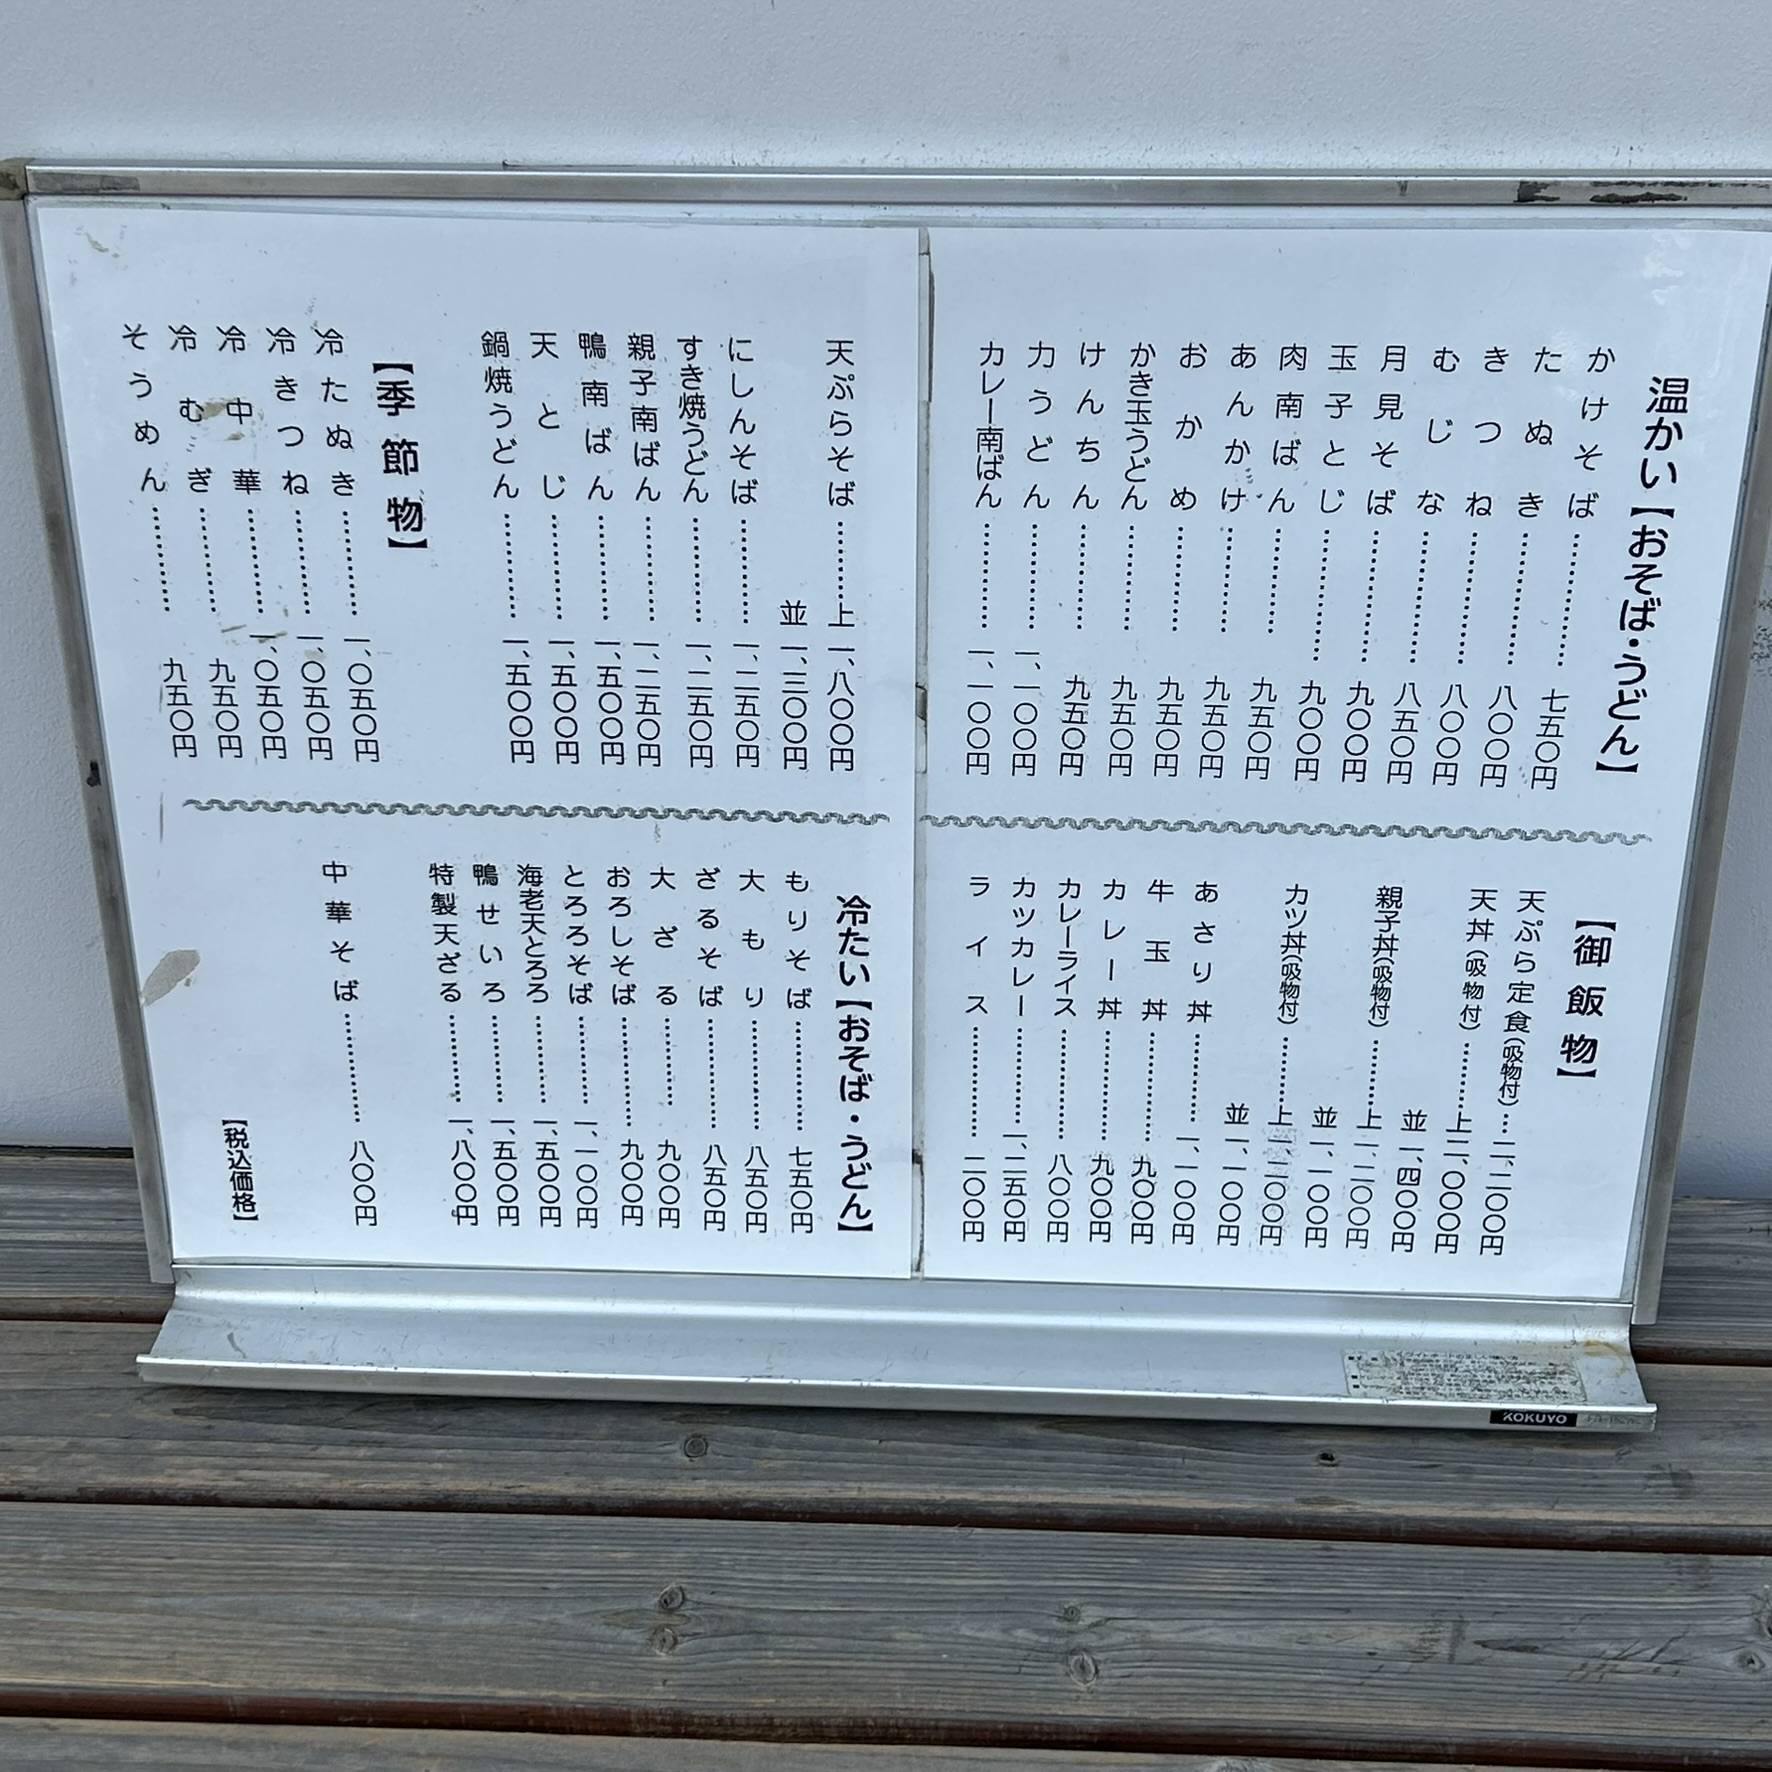 温かい【おそば・うどん】
かけそば……………七五〇円
たぬき……………八〇〇円
きつね……………八〇〇円
むじな……………八五〇円
月見そば……………九〇〇円
玉子とじ……………九〇〇円
肉南ばん…………九五〇円
あんかけ…………九五〇円
おかめ…………九五〇円
かき玉うどん…………九五〇円
けんちん…………九五〇円
力うどん…………一、一〇〇円
カレー南ばん…………一、一〇〇円
天ぷらそば…………上 一、八〇〇円
並 一、三〇〇円
にしんそば…………一、二五〇円
すき焼うどん…………一、二五〇円
親子南ばん…………一、二五〇円
鴨南ばん…………一、五〇〇円
天とじ…………一、五〇〇円
鍋焼うどん…………一、五〇〇円
【季節物】
冷たぬき…………一、〇五〇円
冷きつね…………一、〇五〇円
冷中華…………一、〇五〇円
冷むぎ…………九五〇円
そうめん…………九五〇円
【御飯物】
天ぷら定食(吸物付)…二、二〇〇円
天丼(吸物付)………上 二、〇〇〇円
並 一、四〇〇円
親子丼(吸物付)………上 一、二〇〇円
並 一、一〇〇円
カツ丼(吸物付)………上 一、二〇〇円
並 一、一〇〇円
あさり丼…………一、一〇〇円
牛玉丼…………九〇〇円
カレー丼…………九〇〇円
カレーライス…………八〇〇円
カツカレー…………一、二五〇円
ライス…………二〇〇円
冷たい【おそば・うどん】
もりそば…………七五〇円
大もり…………八五〇円
ざるそば…………八五〇円
大ざる…………九〇〇円
おろしそば…………九〇〇円
とろろそば…………一、一〇〇円
海老天とろろ…………一、五〇〇円
鴨せいろ…………一、五〇〇円
特製天ざる…………一、八〇〇円
中華そば…………八〇〇円
【税込価格】
KOKUYO